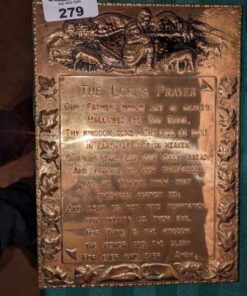 279
THE LORD'S PRAYER
OUR FATHER WHICH ART IN HEAVEN
HALLOWED BE THY
THY KINGDOM COME
IN EARTH AS IT IS IN HEAVEN
GIVE US THIS DAY OUR DAILY BREAD
AND FORGIVE US OUR TRESPASSES
AGAINST US
AND LEAD US NOT INTO TEMPTATION
DELIVER US FROM EVIL
FOR THINE IS THE KINGDOM
THE POWER AND THE GLORY
FOR EVER AND EVER AMEN